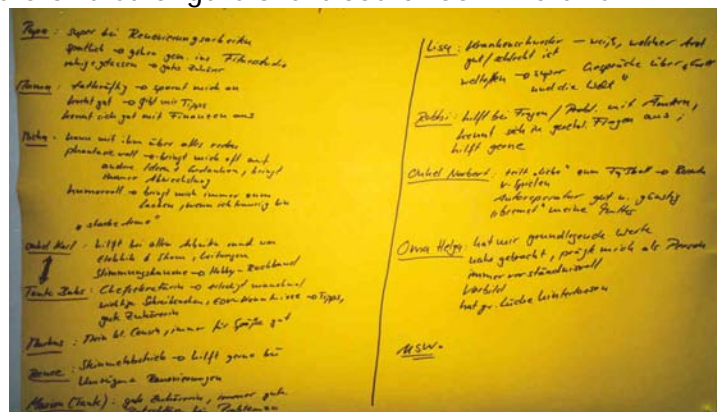 Papa : super bei Renovierungsarbeiten
sportlich → gehen gem. ins Fitnessstudio
ruhig, gelassen → guter Zuhörer
Mama : tatkräftig → spornt mich an
kocht gut → gibt mir Tipps
kennt sich gut mit Finanzen aus
kann mit ihm über alles reden
phantasievoll → bringt mich oft auf
andere Ideen & Gedanken, bringt
immer Abwechslung
humorvoll → bringt mich immer zum
Lachen, wenn ich traurig bin
"starke Arme"
Onkel Karl : hilft bei allen Arbeiten rund um
Elektrik & Strom, Leitungen
Stimmungskanone → Hobby =
Tante Babs : Chefsekretärin → erledigt manchmal
wichtige Schreibsachen, EDV-Kenntnisse → Tipps,
gute Zuhörerin
Markus : Mein kl. Cousin, immer für Späße gut
→ hilft gerne bei
Umzügen & Renovierungen
Marion (Tante) : gute Zuhörerin, immer gute
bei Problemen
Lisa : Krankenschwester – weiß, welcher Arzt
gut/schlecht ist
weltoffen → super Gespräche über "Gott
und die Welt"
hilft bei Fragen / Probl. mit Ämtern,
kennt sich in Fragen aus,
hilft gerne
Onkel Norbert : "Liebe" zum Fußball → Besuch
v. Spielen
Autoreparatur gut u. günstig
"bremst" meine Mutter
Oma Helga : hat mir grundlegende Werte
nahe gebracht, prägte mich als Person
immer verständnisvoll
Vorbild
hat gr. Lücke hinterlassen
usw.